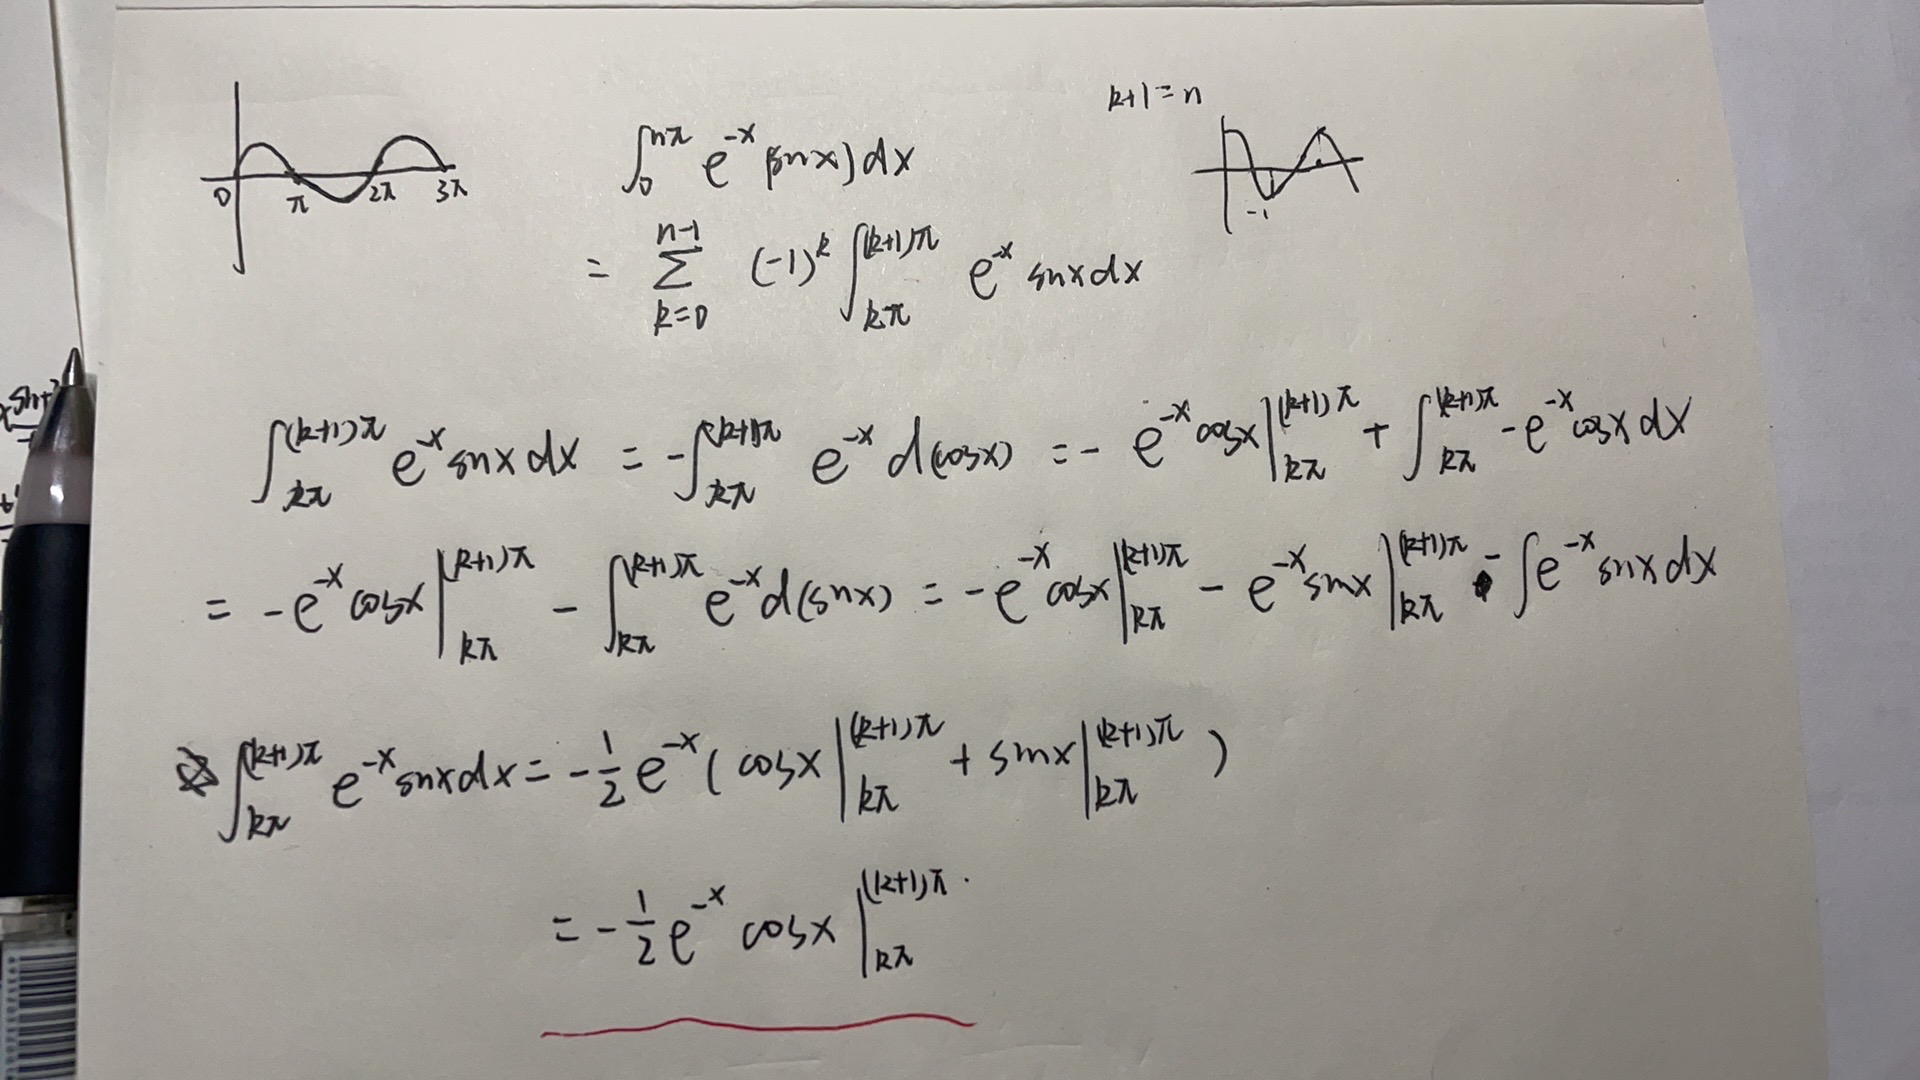 k+1=n
0 π 2π 3π
-1
∫_0^{nπ} e^{-x} |sinx| dx
= Σ_{k=0}^{n-1} (-1)^k ∫_{kπ}^{(k+1)π} e^{-x} sinx dx
∫_{kπ}^{(k+1)π} e^{-x} sinx dx = -∫_{kπ}^{(k+1)π} e^{-x} d(cosx) = - e^{-x} cosx |_{kπ}^{(k+1)π} + ∫_{kπ}^{(k+1)π} -e^{-x} cosx dx
= -e^{-x} cosx |_{kπ}^{(k+1)π} - ∫_{kπ}^{(k+1)π} e^{-x} d(sinx) = -e^{-x} cosx |_{kπ}^{(k+1)π} - e^{-x} sinx |_{kπ}^{(k+1)π} - ∫ e^{-x} sinx dx
∫_{kπ}^{(k+1)π} e^{-x} sinx dx = -\frac{1}{2} e^{-x} ( cosx |_{kπ}^{(k+1)π} + sinx |_{kπ}^{(k+1)π} )
= -\frac{1}{2} e^{-x} cosx |_{kπ}^{(k+1)π}.